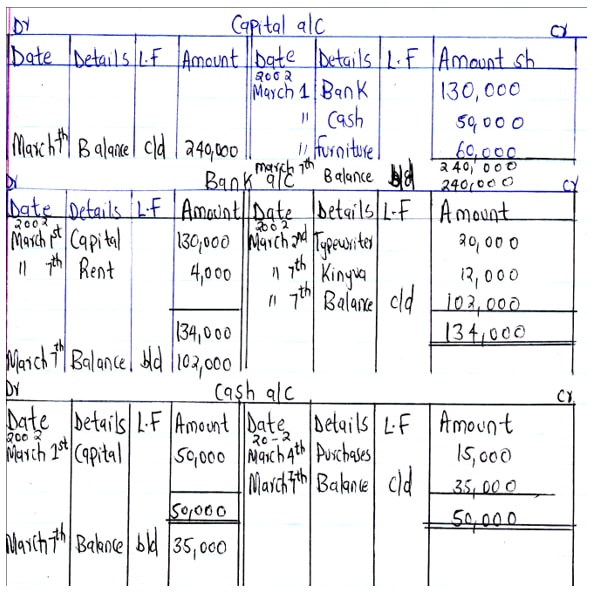 Dr Capital a/c Cr
Date Details L.F Amount Date Details L.F Amount sh
2002
March 1 Bank 130,000
" Cash 50,000
March 7th Balance c/d 240,000 " furniture 60,000
240,000
March 7th Balance b/d 240,000
Dr Bank a/c Cr
Date Details L.F Amount Date Details L.F Amount
2002 2002
March 1st Capital 130,000 March 2nd Typewriter 20,000
" 7th Rent 4,000 " 7th Kinyua 12,000
" 7th Balance c/d 102,000
134,000 134,000
March 7th Balance b/d 102,000
Dr Cash a/c Cr
Date Details L.F Amount Date Details L.F Amount
2002 20-2
March 1st Capital 50,000 March 4th Purchases 15,000
March 7th Balance c/d 35,000
50,000 50,000
March 7th Balance b/d 35,000